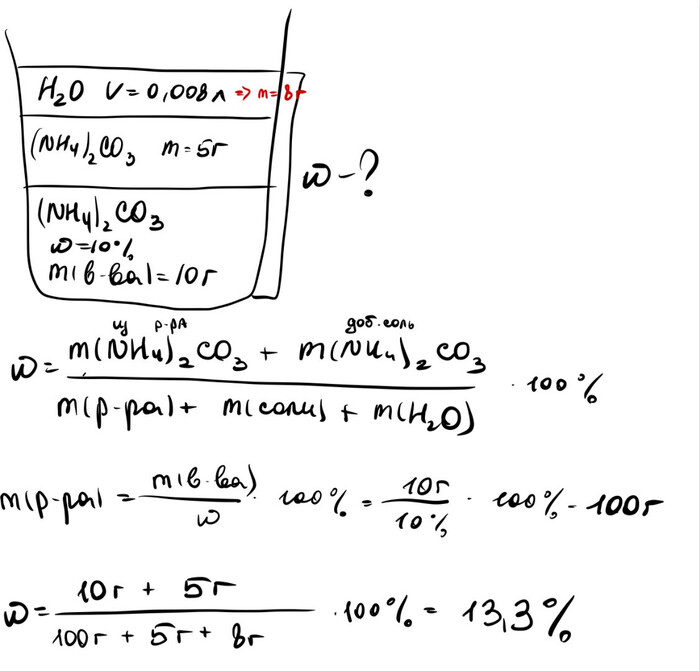 H₂O V = 0,008л => m=8г
(NH₄)₂CO₃ m = 5г
(NH₄)₂CO₃
ω=10%
m(в-ва)=10г
ω-?
из р-ра доб.соль
ω = m(NH₄)₂CO₃ + m(NH₄)₂CO₃ / m(р-ра) + m(соли) + m(H₂O) · 100%
m(р-ра) = m(в-ва) / ω · 100% = 10г / 10% · 100% - 100г
ω = 10г + 5г / 100г + 5г + 8г · 100% = 13,3%